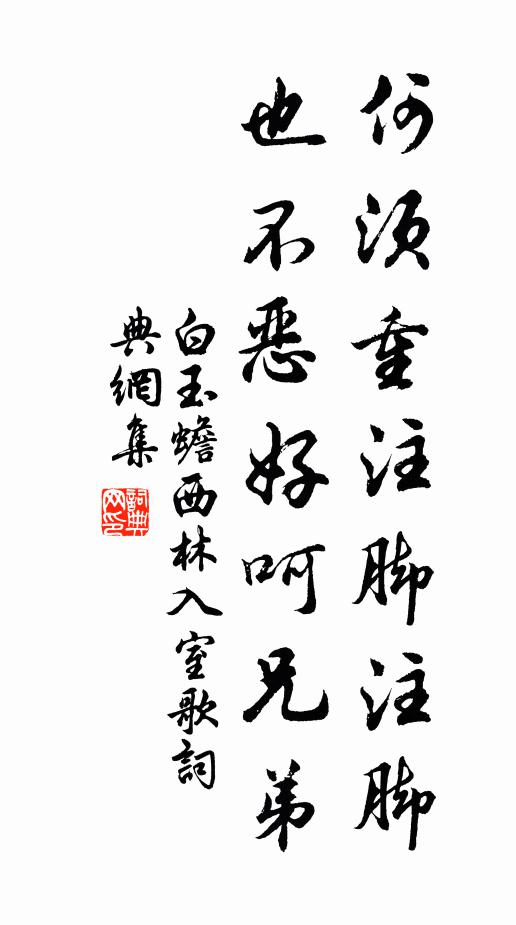 何須重注脚注脚
也不惡好呵兄弟
白玉蟾西林入室歌詞
典網集
詞典网印